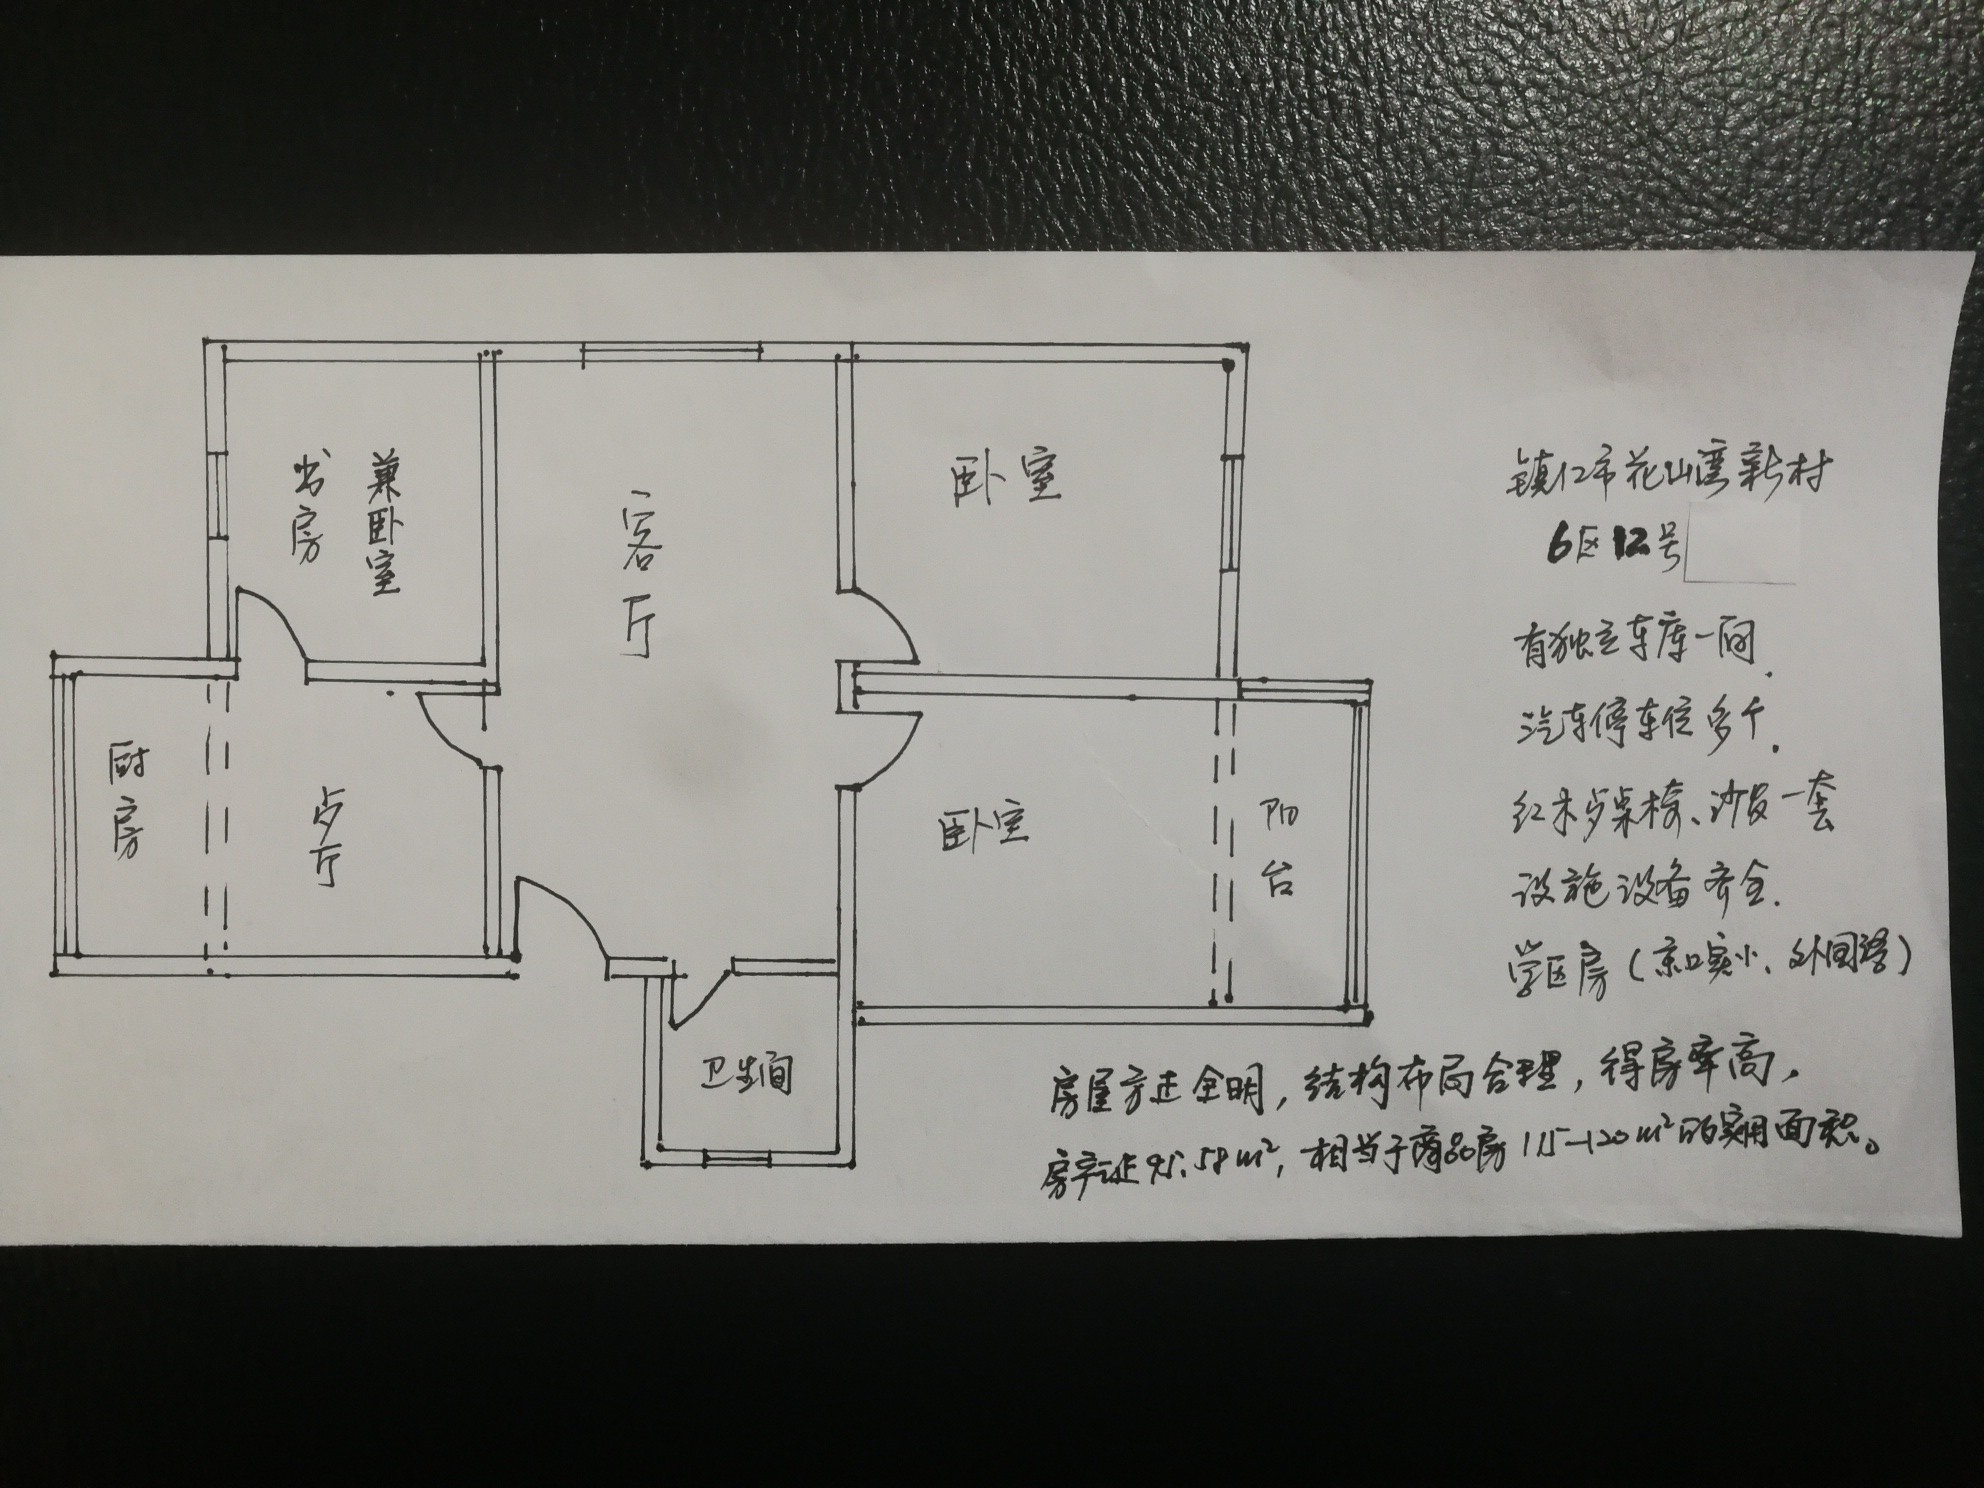 书房
兼卧室
客厅
卧室
厨房
歺厅
卧室
阳台
卫生间
镇江市花山湾新村
6区12号
有独立车库一间.
汽车停车位多个.
红木歺桌椅、沙发一套
设施设备齐全.
学区房(京口实小、外国语)
房屋方正全明,结构布局合理,得房率高,
房产证95.58m²,相当于商品房115-120m²的实用面积。